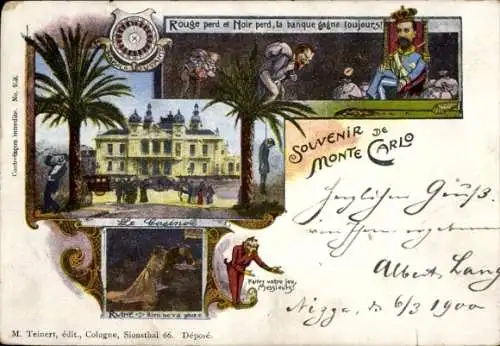 Rouge perd et Noir perd, la banque gagne toujours!
Contrefaçon interdite. No.
SOUVENIR DE
MONTE CARLO
Le Casino
Herzlichen Gruß
Faites votre jeu
Messieurs!
Albert Lang
Nizza, d. 6/3 1900
RUINE Rien ne va plus
M. Teinert, édit., Cologne, Sionsthal 66. Déposé.